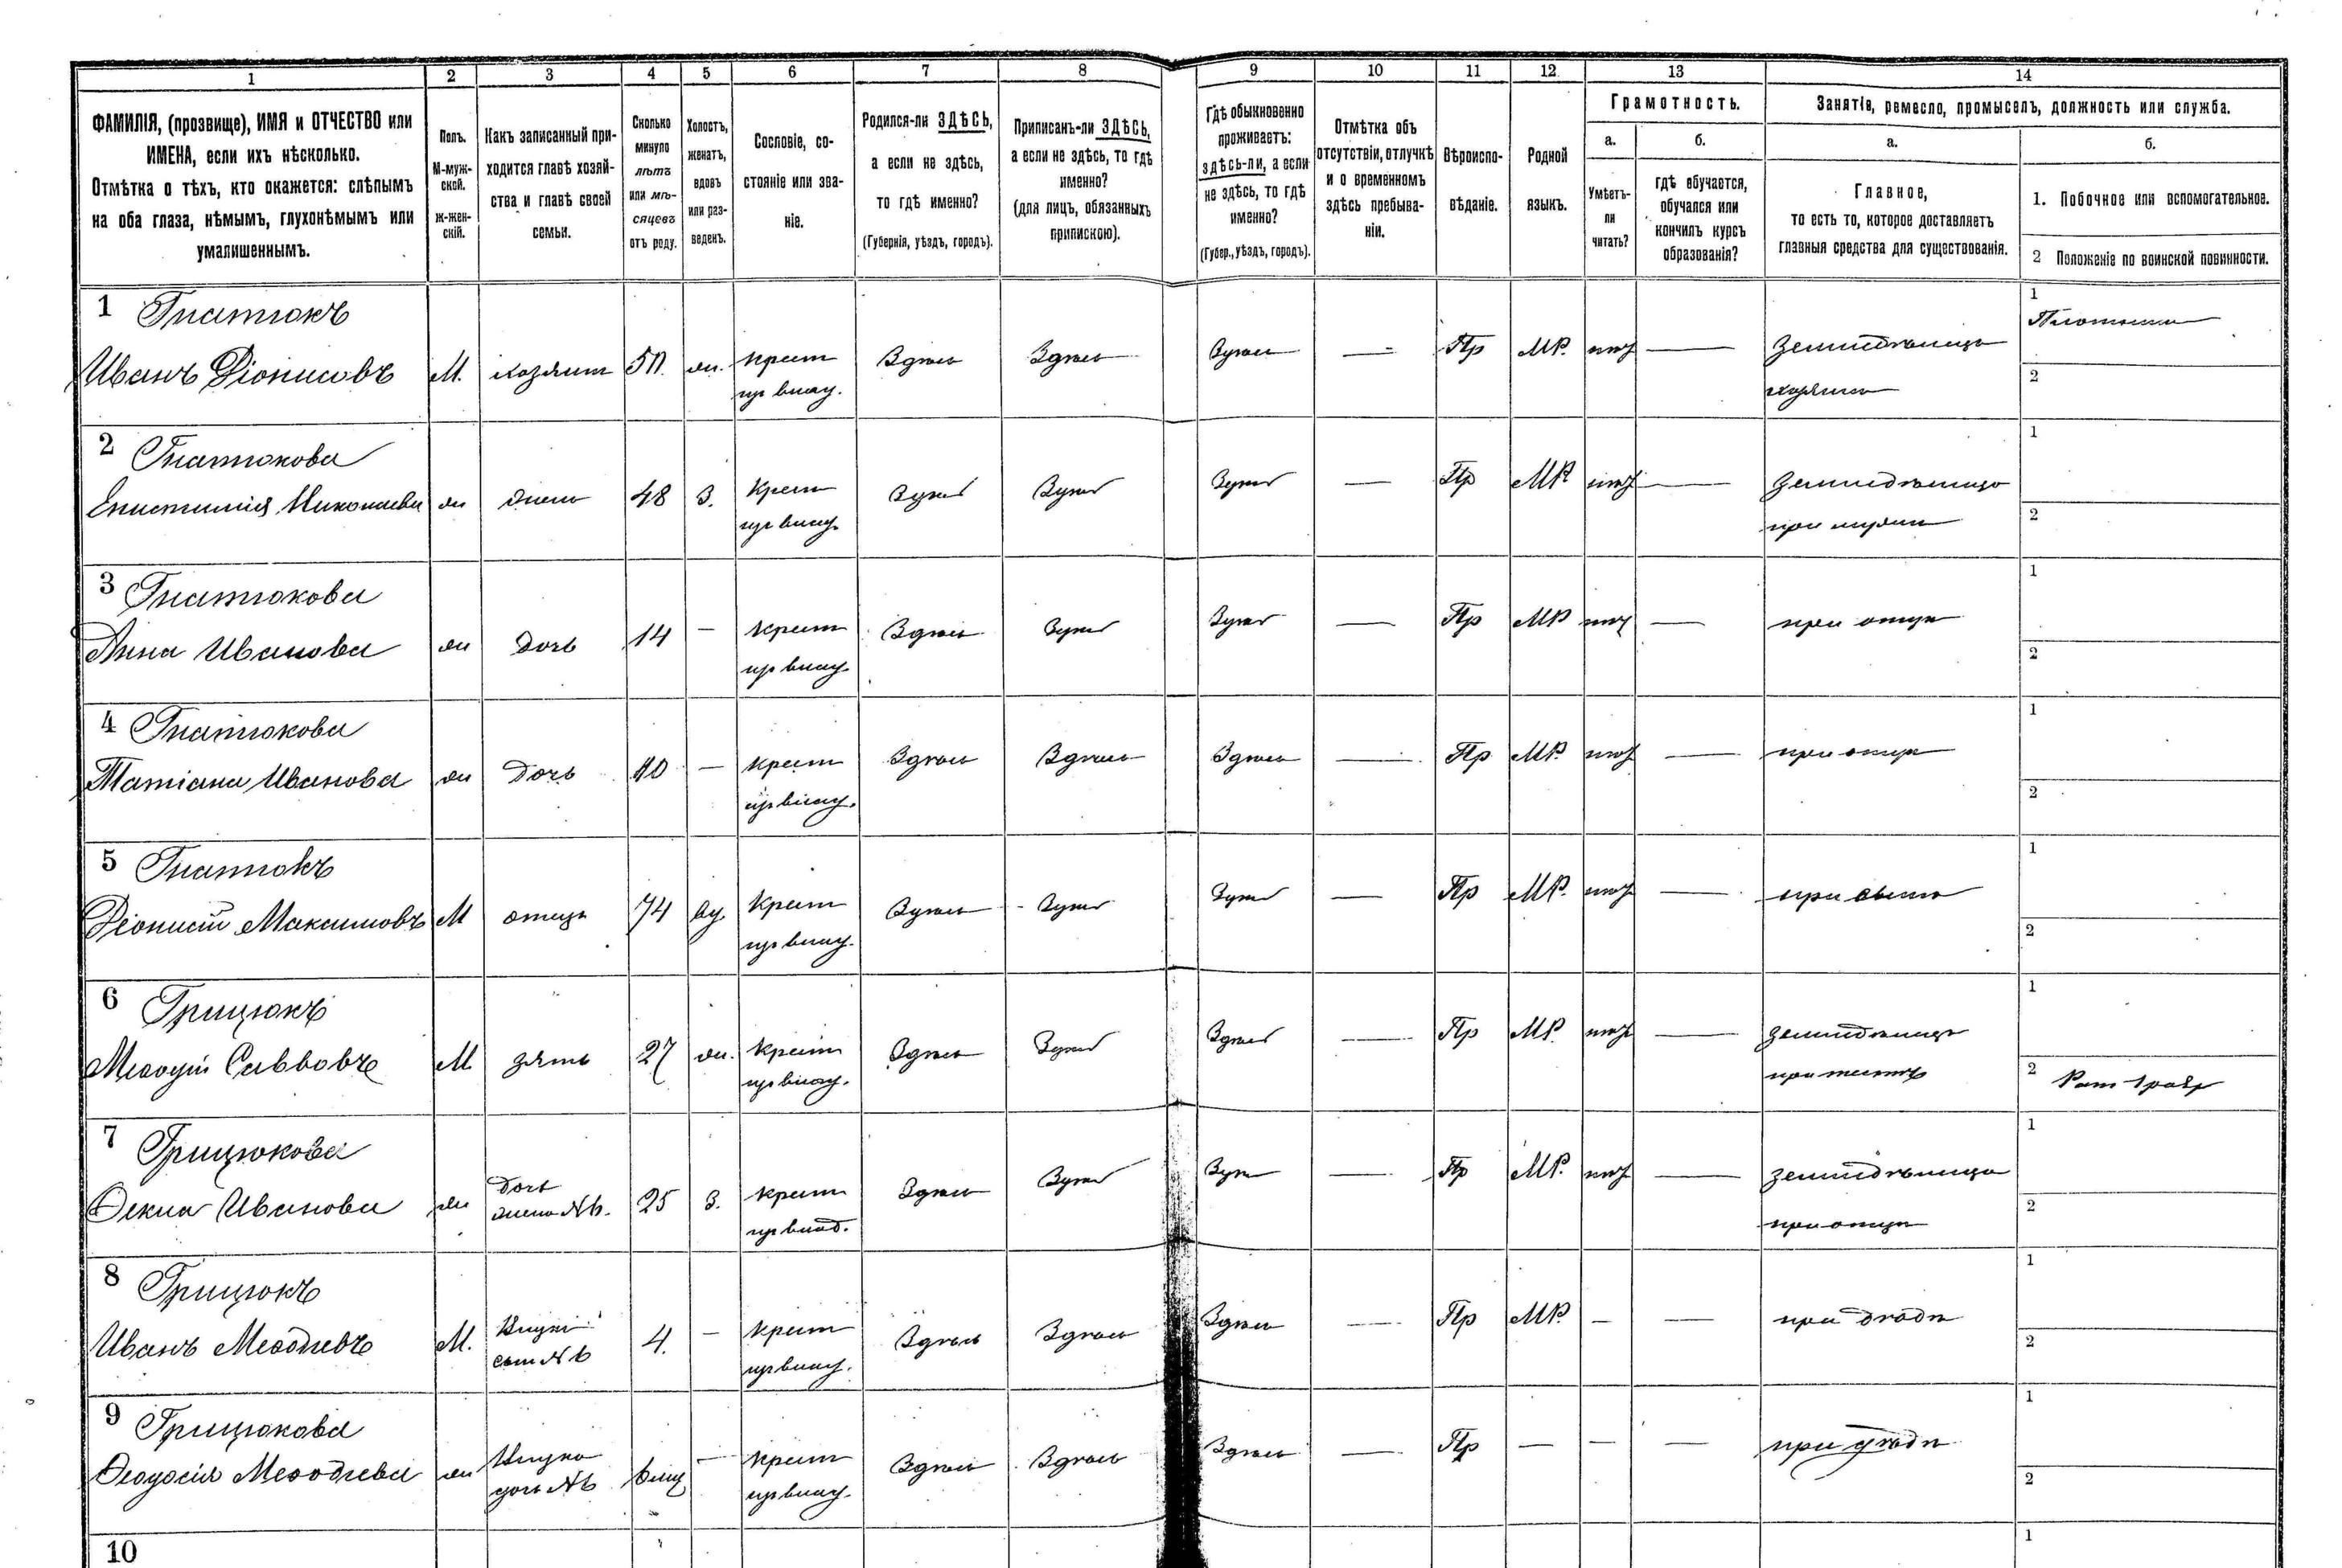 1 2 3 4 5 6 7 8 9 10 11 12 13 14
ФАМИЛІЯ, (прозвище), ИМЯ и ОТЧЕСТВО или
ИМЕНА, если ихъ нѣсколько.
Отмѣтка о тѣхъ, кто окажется: слѣпымъ
на оба глаза, нѣмымъ, глухонѣмымъ или
умалишеннымъ.
Полъ.
М-муж-
ской.
ж-жен-
скій.
Какъ записанный при-
ходится главѣ хозяй-
ства и главѣ своей
семьи.
Сколько
минуло
лѣтъ
или мѣ-
сяцевъ
отъ роду.
Холостъ,
женатъ,
вдовъ
или раз-
веденъ.
Сословіе, со-
стояніе или зва-
ніе.
Родился-ли ЗДѢСЬ,
а если не здѣсь,
то гдѣ именно?
(Губернія, уѣздъ, городъ).
Приписанъ-ли ЗДѢСЬ,
а если не здѣсь, то гдѣ
именно?
(для лицъ, обязанныхъ
припискою).
Гдѣ обыкновенно
проживаетъ:
здѣсь-ли, а если
не здѣсь, то гдѣ
именно?
(Губер., уѣздъ, городъ).
Отмѣтка объ
отсутствіи, отлучкѣ
и о временномъ
здѣсь пребыва-
ніи.
Вѣроиспо-
вѣданіе.
Родной
языкъ.
Грамотность.
а.
Умѣетъ-
ли
читать?
б.
гдѣ обучается,
обучался или
кончилъ курсъ
образованія?
Занятіе, ремесло, промыселъ, должность или служба.
а.
Главное,
то есть то, которое доставляетъ
главныя средства для существованія.
б.
1. Побочное или вспомогательное.
2 Положеніе по воинской повинности.
1 Гнатюкъ
Иванъ Діонисовъ М. хозяинъ 50. жн. крест Здѣсь Здѣсь Здѣсь — Пр МР. нѣт — Земледѣлецъ
хозяинъ
1
2
2 Гнатюкова
Епистимія Николаева жн жена 48 З. крест Здѣсь Здѣсь Здѣсь — Пр МР нѣт — Земледѣлица
1
2
3 Гнатюкова
Анна Иванова жн Дочь 14 — крест Здѣсь Здѣсь Здѣсь — Пр МР нѣт — при отцѣ
1
2
4 Гнатюкова
Татіана Иванова жн Дочь 10 — крест Здѣсь Здѣсь Здѣсь — Пр МР. нѣт — при отцѣ
1
2
5 Гнатюкъ
Діонисій Максимовъ М отецъ 74 вд. крест Здѣсь Здѣсь Здѣсь — Пр МР. нѣт — при сынѣ
1
2
6 Грицюкъ
Меѳодій Саввовъ М зять 27 жн. крест Здѣсь Здѣсь Здѣсь — Пр МР. нѣт — земледѣлецъ
при тестѣ
1
2
7 Грицюкова
Ѳекла Иванова жн Дочь 25 З. крест Здѣсь Здѣсь Здѣсь — Пр МР. нѣт — земледѣлица
жена №6.
при отцѣ
1
2
8 Грицюкъ
Иванъ Меѳодіевъ М. Внукъ 4. — крест Здѣсь Здѣсь Здѣсь — Пр МР. — — при дѣдѣ
сын №6
1
2
9 Грицюкова
Ѳеодосія Меѳодіева жн Внука — крест Здѣсь Здѣсь Здѣсь — Пр — — — при дѣдѣ
дочь №6
1
2
10
1